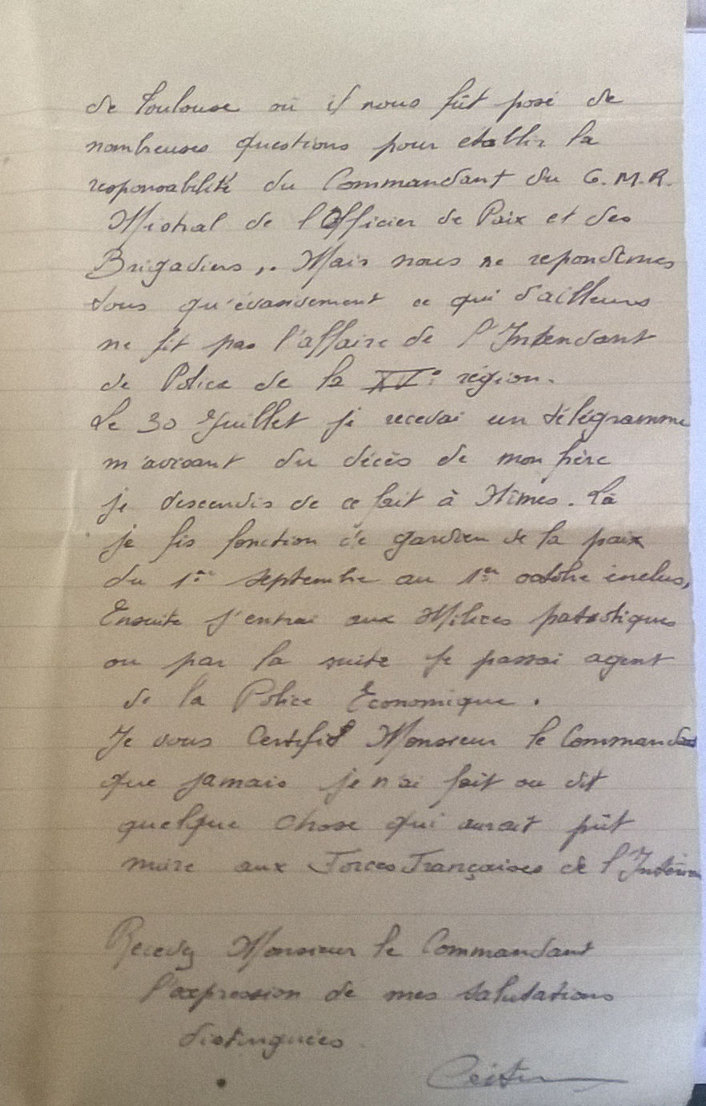 de Toulouse où il nous fût posé de
nombreuses questions pour etablir la
responsabilité du Commandant du G.M.R.
Mistral de l'Officier de Paix et des
Brigadiers,. Mais nous ne repondîmes
tous qu'évasivement ce qui d'ailleurs
ne fit pas l'affaire de l'Intendant
de Police de la XVe région.
Le 30 Juillet je recevai un télégramme
m'avisant du décès de mon père
je descendis de ce fait à Nîmes. Là
je fis fonction de gardien de la paix
du 1er septembre au 1er octobre inclus,
Ensuite j'entrai aux Milices patriotiques
ou par la suite je passai agent
de la Police Economique.
Je vous Certifie Monsieur le Commandant
que jamais je n'ai fait ou dit
quelque chose qui aurait pût
nuire aux Forces Françaises de l'Intérieur
Recevez Monsieur le Commandant
l'expression de mes salutations
distinguées.